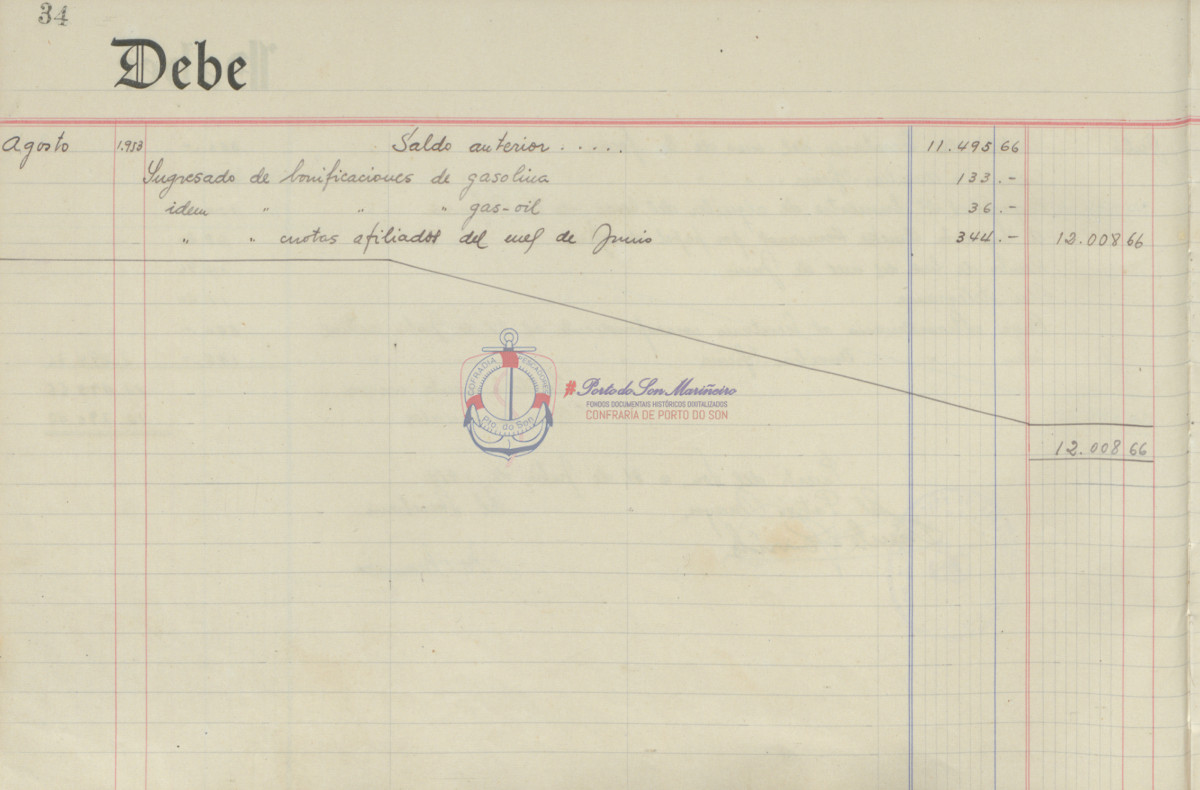 34
Debe
Agosto 1.953 Saldo anterior..... 11.495 66
Ingresado de bonificaciones de gasolina 133.-
idem " " " gas-oil 36.-
" " cuotas afiliados del mes de Junio 344.- 12.008 66
COFRADIA PESCADORES
Pto. do Son
#Porto do Son Mariñeiro
FONDOS DOCUMENTAIS HISTÓRICOS DIXITALIZADOS
CONFRARÍA DE PORTO DO SON
12.008 66